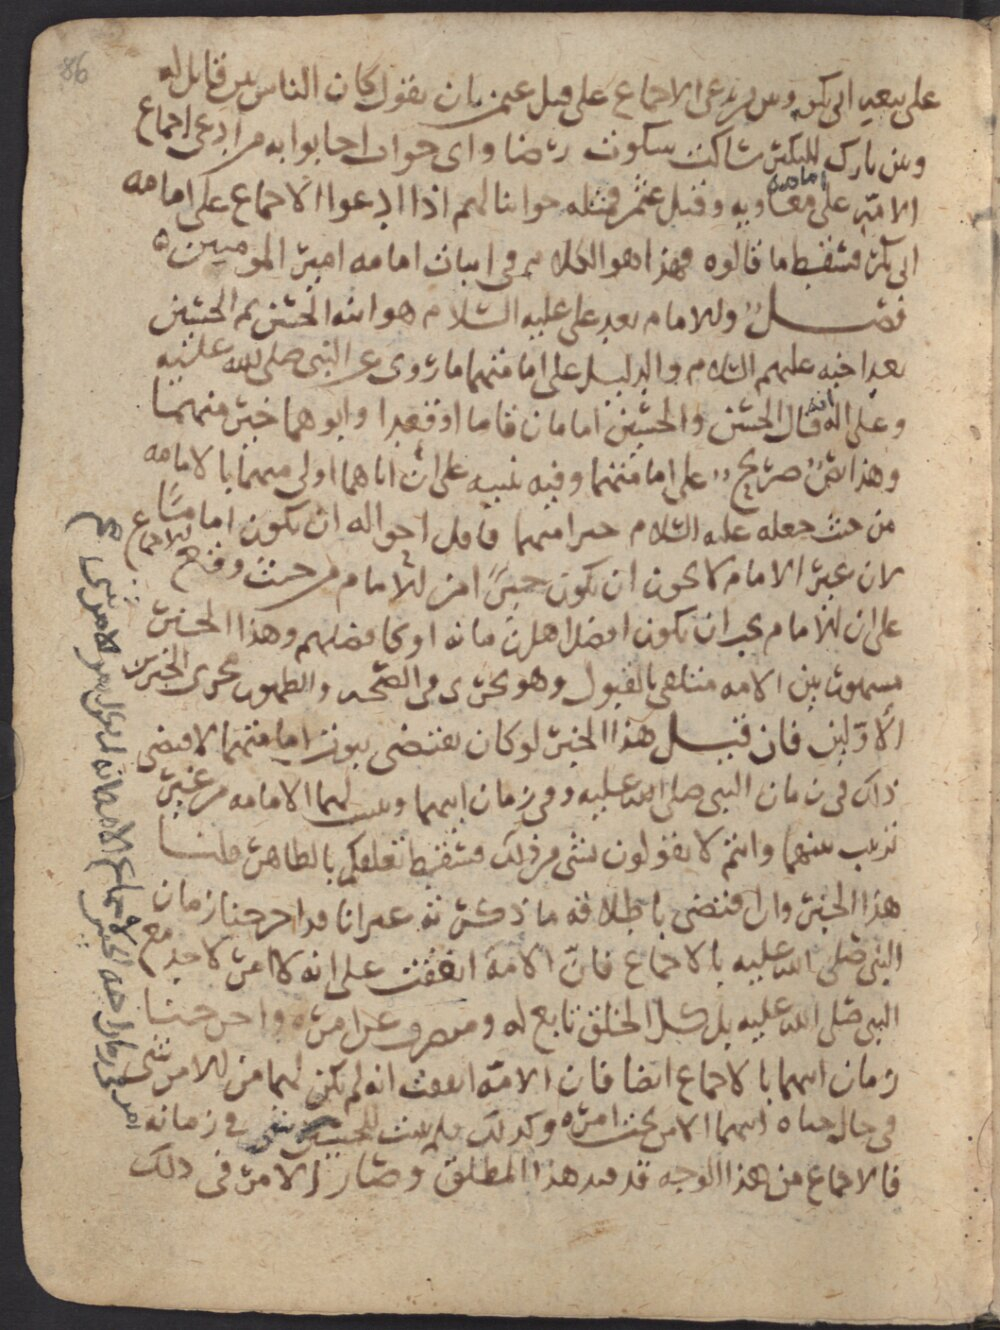 86
على بيعه ابى بكر وبين من يدعى الاجماع على قتل عثمن بان يقول كان الناس بين قاتل له
وبين تارك للنكير ساكت سكوت رضا واى جواب اجابوا به من ادعى اجماع
الامة على امامة معاويه وقتل عثمن فمثله جوابنا لهم اذا ادعوا الاجماع على امامه
ابى بكر فسقط ما قالوه فهذا هو الكلام فى اثبات امامه امير المومنين ه
فصل والامام بعد على عليه السلام هو ابنه الحسن ثم الحسين
بعد اخيه عليهم السلام والدليل على امامتهما ما روى عن النبى صلى الله عليه
وعلى اله انه قال الحسن والحسين امامان قاما او قعدا وابوهما خير منهما
وهذا نص صريح على امامتهما وفيه تنبيه على ان اباهما اولى منهما بالامامه
من حيث جعله عليه السلام خيرا منهما فاقل احواله ان يكون اماما مثلهما
لان غير الامام لا يجوز ان يكون خيرا من الامام من حيث وقع الاجماع
على ان الامام يجب ان يكون افضل اهل زمانه او كافضلهم وهذا الخبر
مشهور بين الامه متلقى بالقبول وهو يجرى فى الصحه والظهور مجرى الخبرين
الاولين فان قيل هذا الخبر لو كان يقتضى ثبوت امامتهما لاقتضى
ذلك فى زمان النبى صلى الله عليه وفى زمان ابيهما وثبتت لهما الامامه من غير
ترتيب بينهما وانتم لا تقولون بشى من ذلك فسقط تعلقكم بالظاهر قلنا
هذا الخبر وان اقتضى باطلاقه ما ذكرته غير انا قد اخرجنا زمان
النبى صلى الله عليه بالاجماع فان الامة اتفقت على انه لا امر لاحد مع
النبى صلى الله عليه بل كل الخلق تابع له ومتصرف عن امره واخرجنا
زمان ابيهما بالاجماع ايضا فان الامه اتفقت انه لم يكن لهما من الامر شى
فى حال حياه ابيهما الا من تحت امره وكذلك فلم يثبت للحسين شى فى زمانه
فالاجماع من هذا الوجه قد قيد هذا المطلق وصار الامر فى ذلك